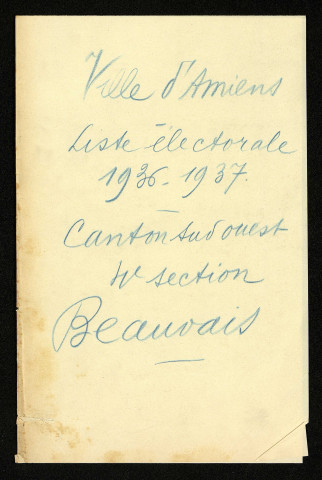 Ville d'Amiens
Liste électorale
1936-1937.
Canton sud ouest
4e section
Beauvais